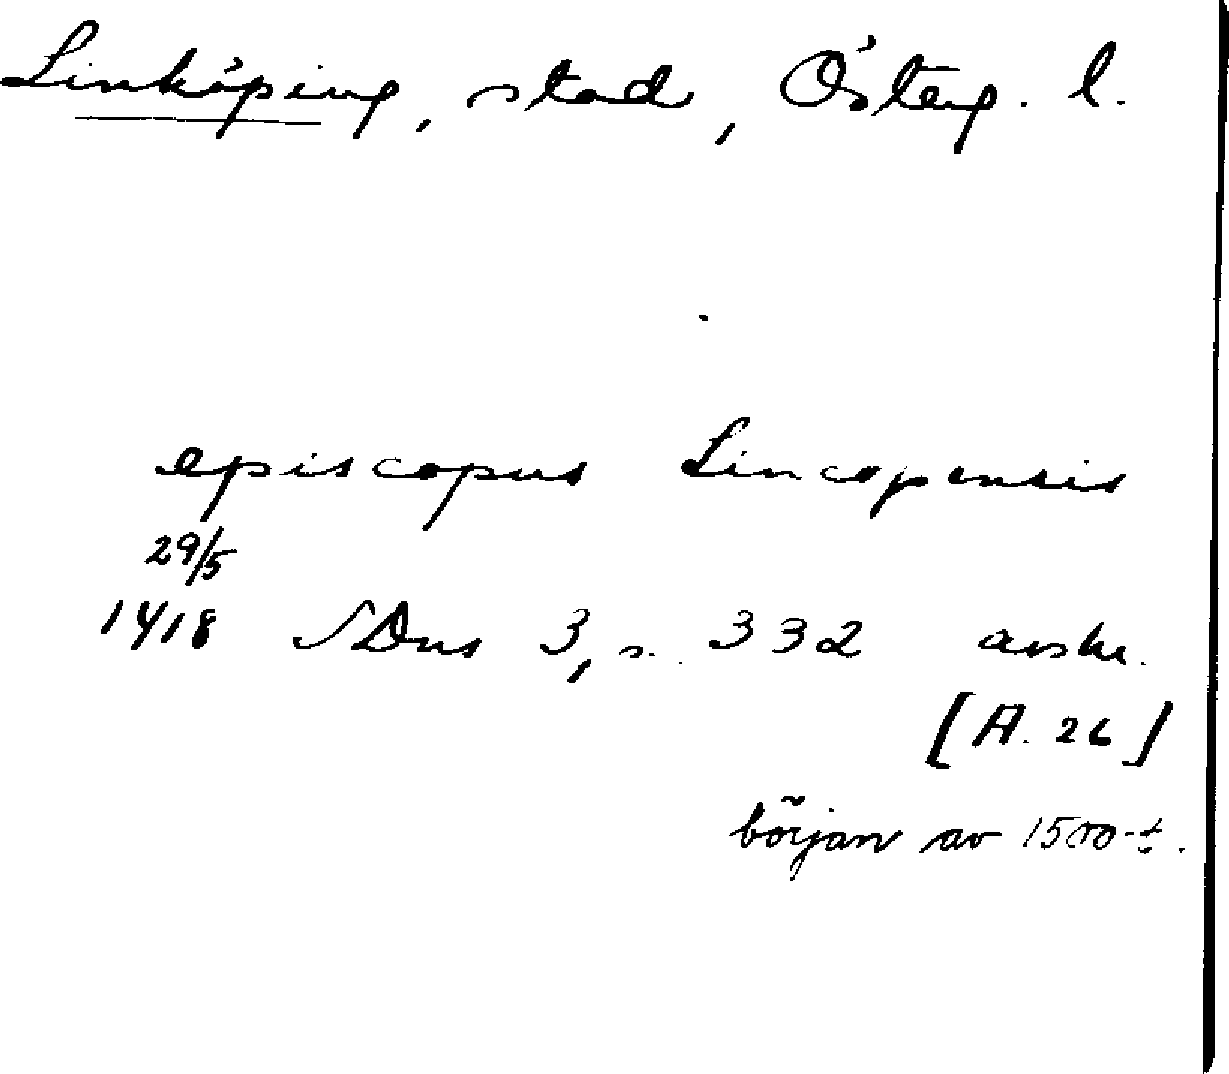 Linköping, stad, Österg. l.
episcopus Lincopensis
29/5
1418 SDns 3, s. 332 avskr.
[A. 26]
början av 1500-t.